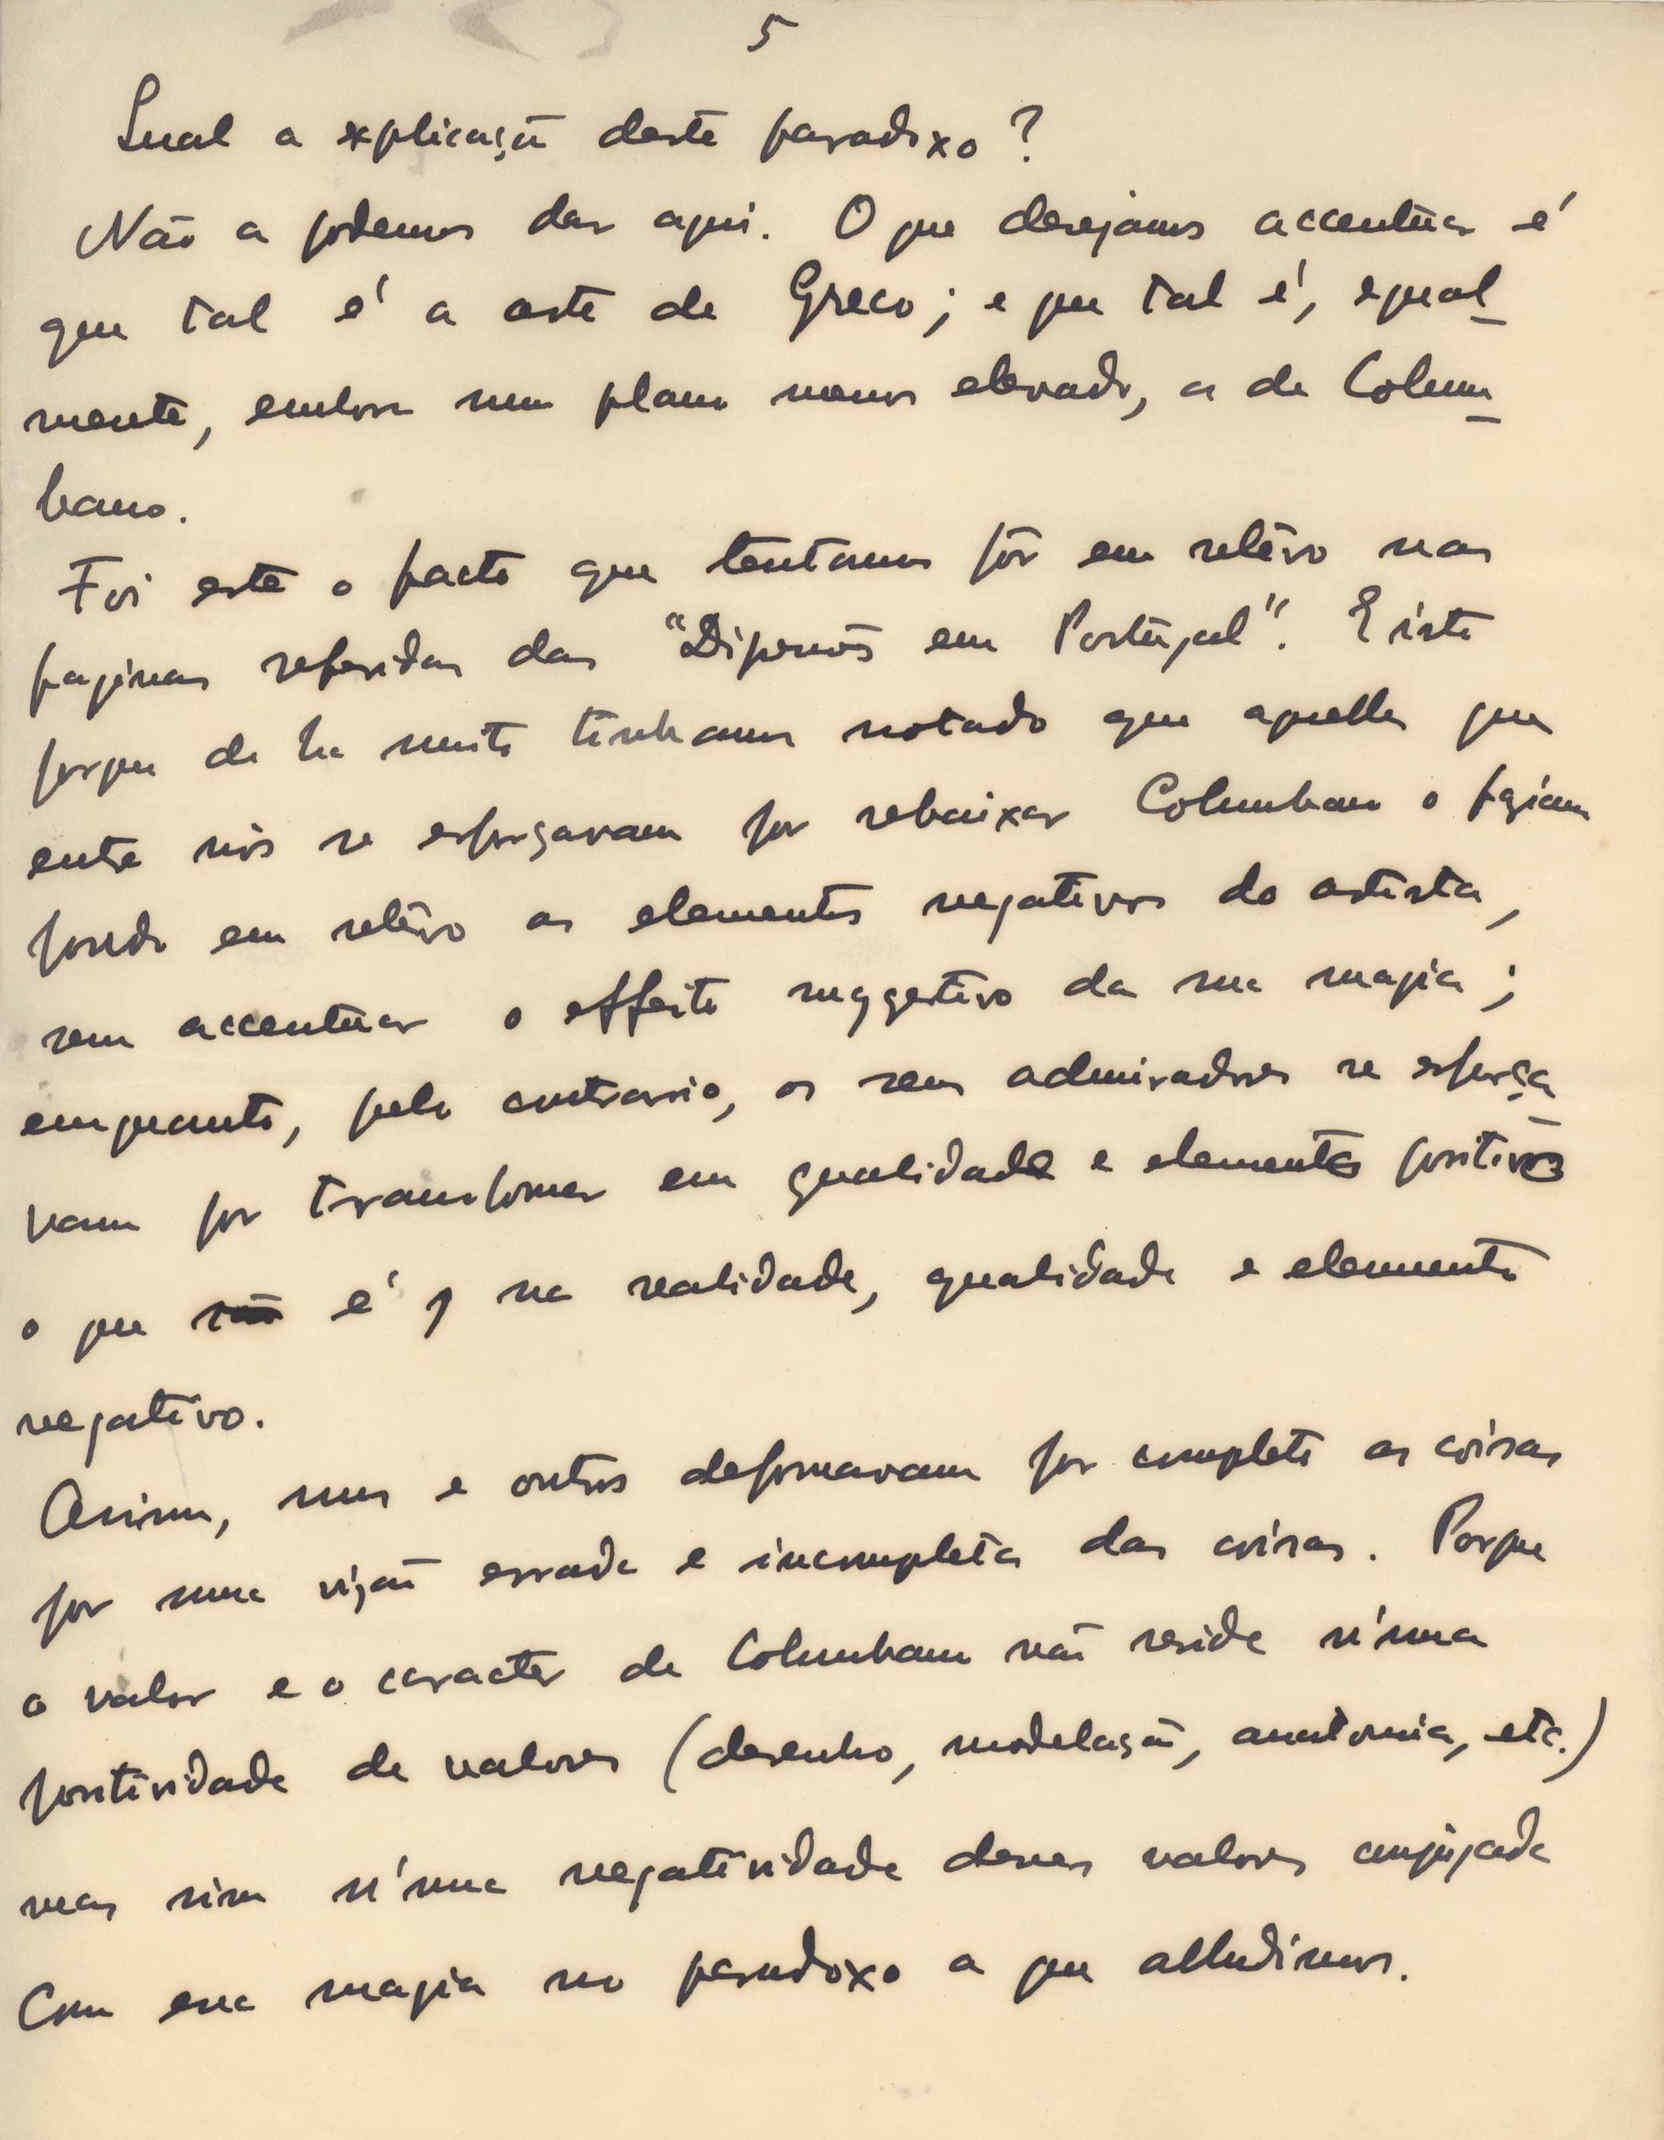 5
Qual a explicação deste paradoxo?
Não a podemos dar aqui. O que desejamos accentuar é
que tal é a arte de Greco; e que tal é, egual-
mente, embora num plano menos elevado, a de Colum-
bano.
Foi este o facto que tentamos pôr em relêvo nas
paginas referidas das "Dispersos em Portugal". E isto
porque de ha muito tinhamos notado que aquelles que
entre nós se esforçavam por rebaixar Columbano o faziam
pondo em relêvo os elementos negativos do artista,
sem accentuar o effeito suggestivo da sua magia;
emquanto, pelo contrario, os seus admiradores se esforça-
vam por transformar em qualidade e elementos positivos
o que é, na realidade, qualidade e elemento
negativo.
Assim, uns e outros deformavam por completo as coisas
por uma visão errada e incompleta das coisas. Porque
o valor e o caracter de Columbano não reside n'uma
positividade de valores (desenho, modelação, anatomia, etc.)
mas sim n'uma negatividade desses valores conjugada
com essa magia no paradoxo a que alludimos.